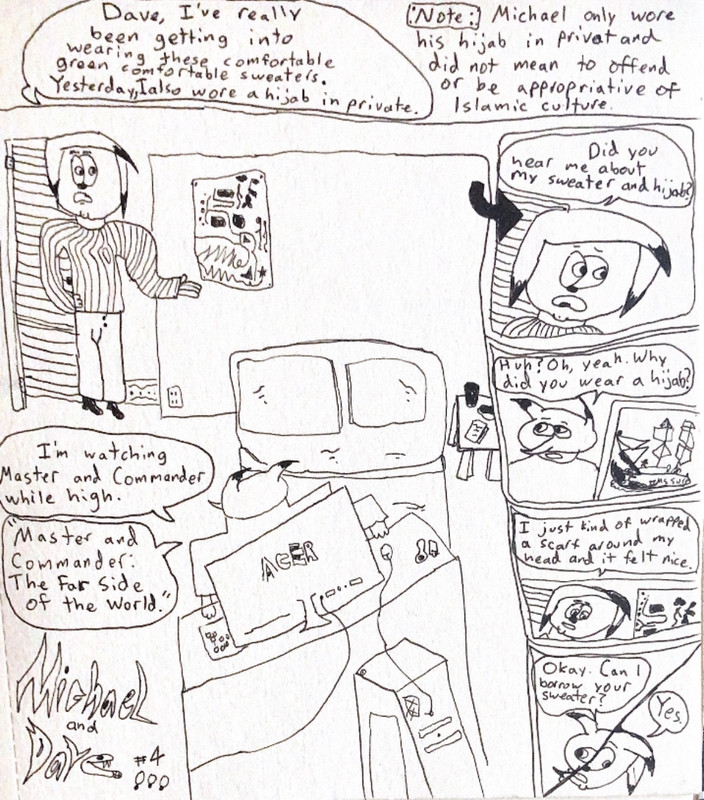 Dave, I've really
been getting into
wearing these comfortable
green comfortable sweaters.
Yesterday, I also wore a hijab in private.
Note: Michael only wore
his hijab in privat and
did not mean to offend
or be appropriative of
Islamic culture.
Did you
hear me about
my sweater and hijab?
Huh? Oh, yeah. Why
did you wear a hijab?
I'm watching
Master and Commander
while high.
"Master and
Commander:
The Far Side
of the World."
ACER
I just kind of wrapped
a scarf around my
head and it felt nice.
Okay. Can I
borrow your
sweater?
Yes.
Michael
and
Dave
#4